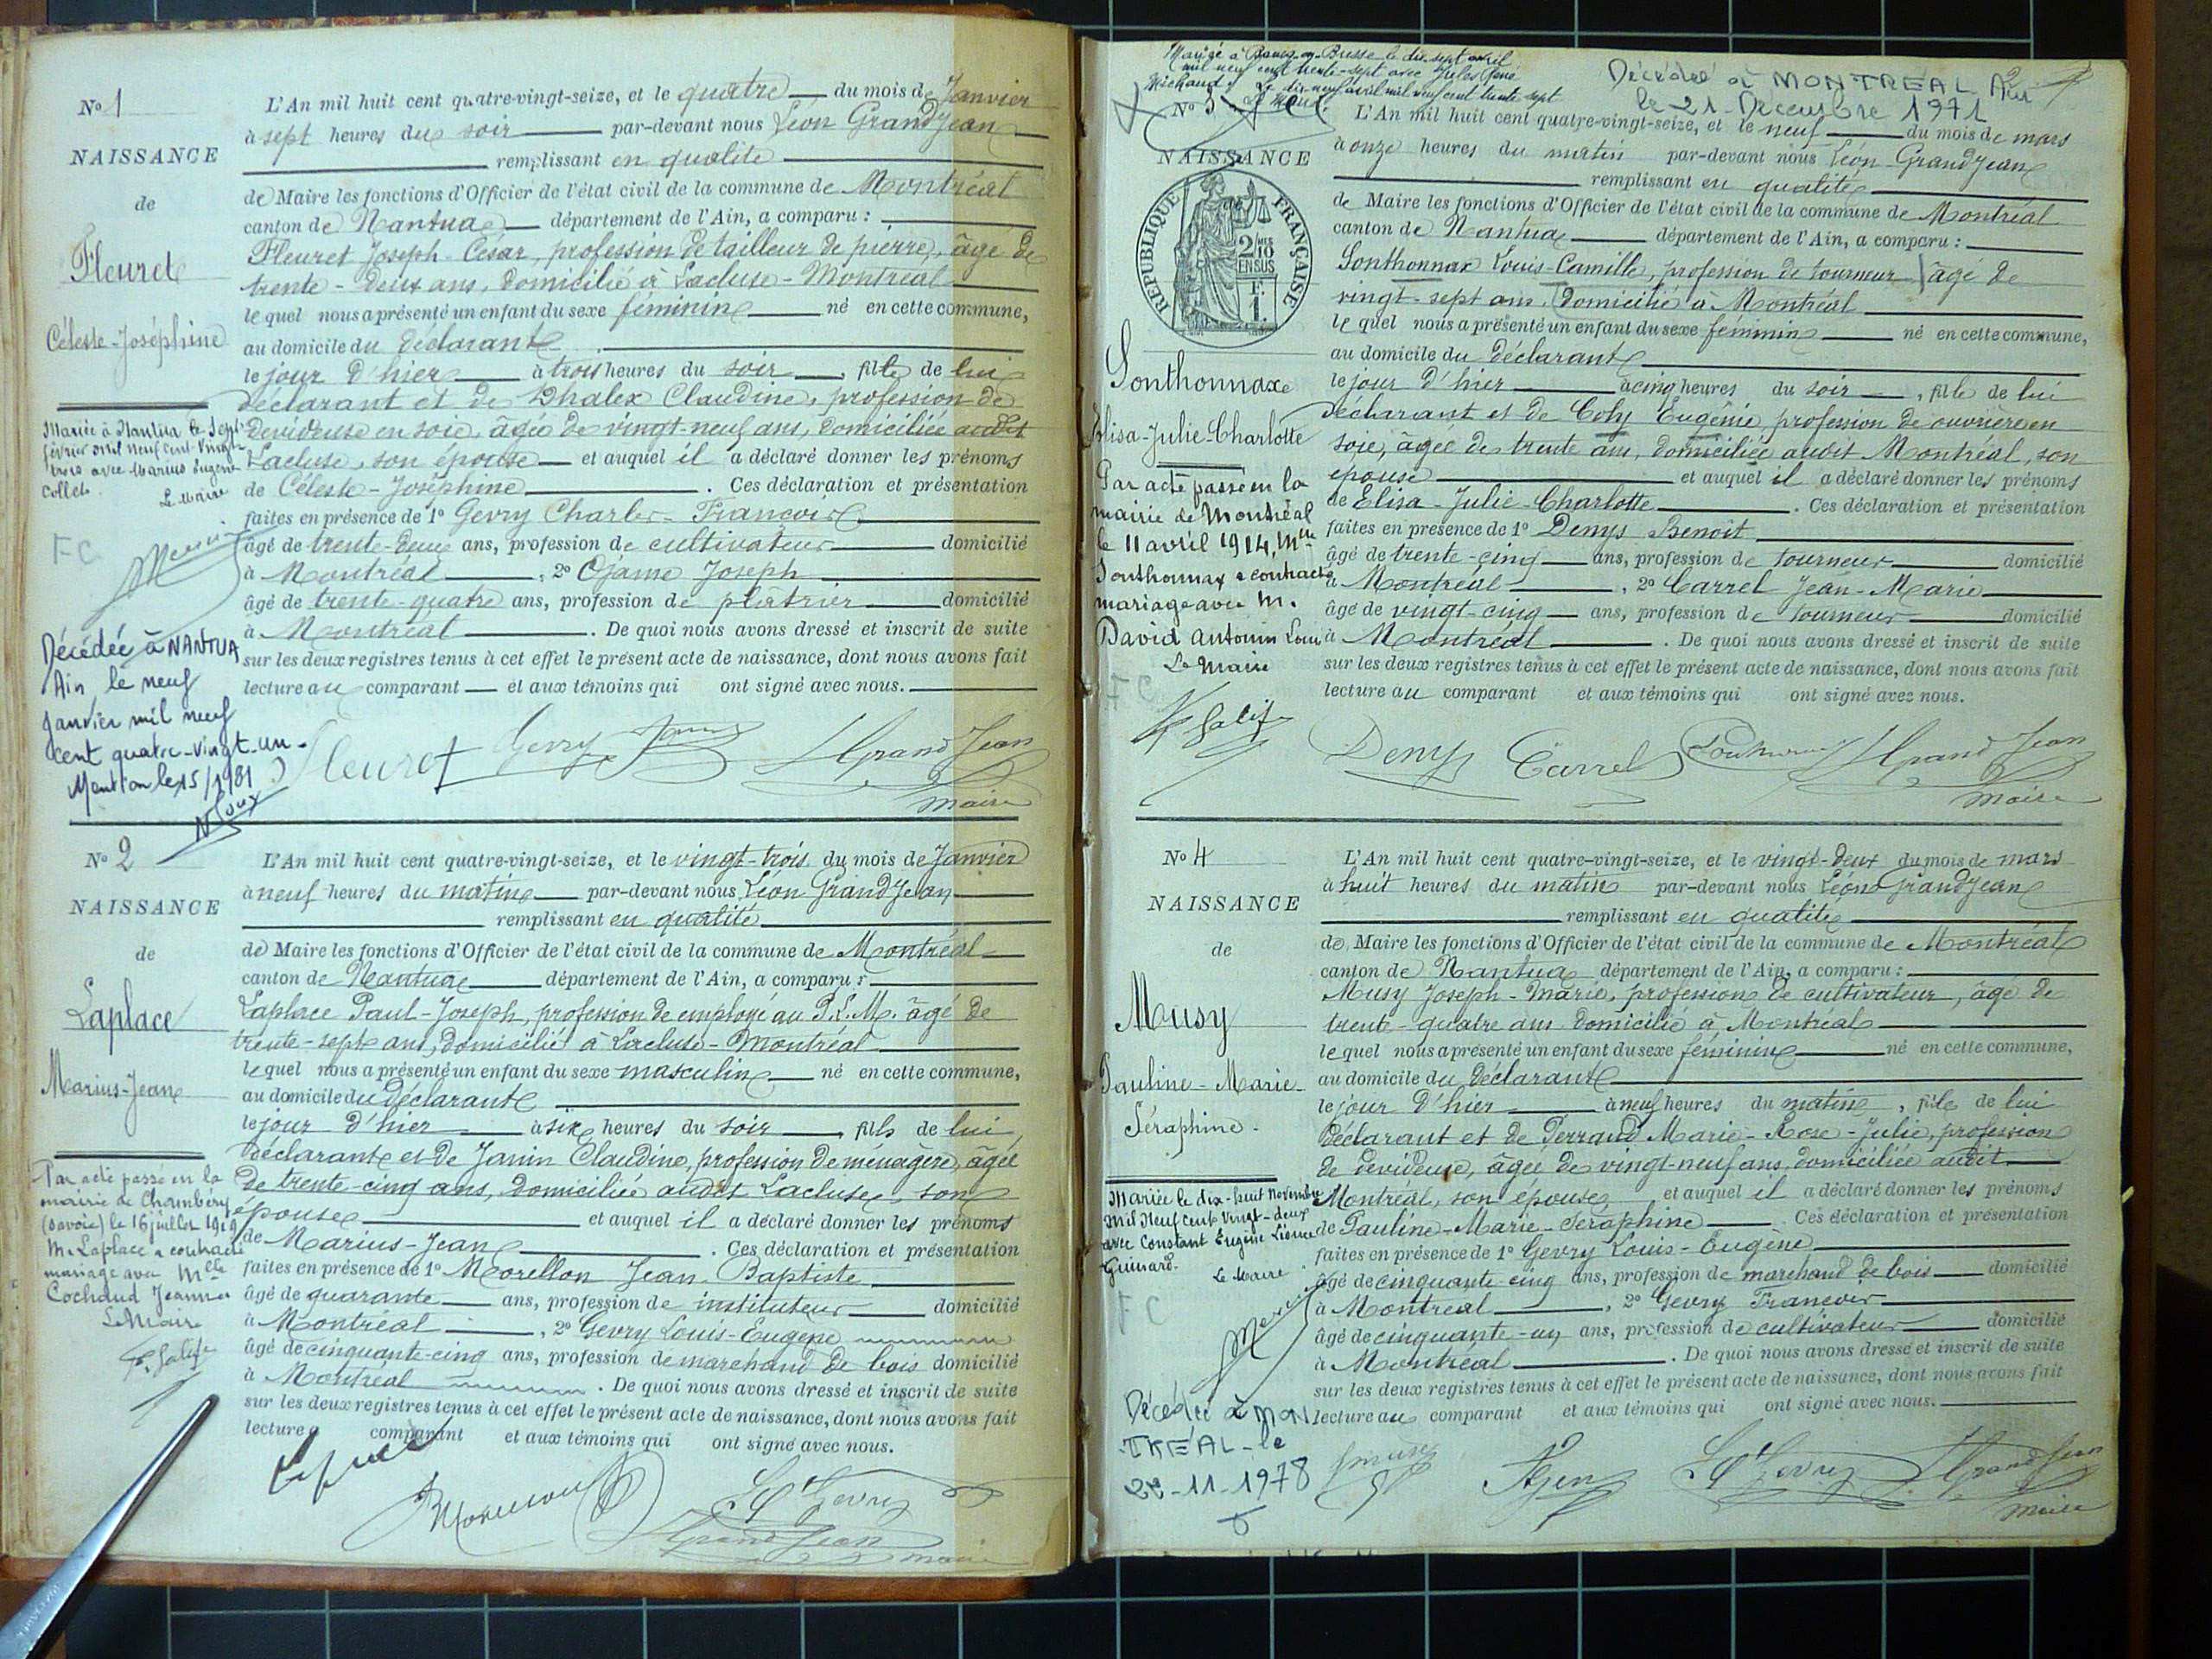 No 1
NAISSANCE
de
Fleuret
Céleste-Joséphine
L'An mil huit cent quatre-vingt-seize, et le quatre du mois de Janvier
à sept heures du soir par-devant nous Léon Grandjean
remplissant en qualité
de Maire les fonctions d'Officier de l'état civil de la commune de Montréal
canton de Nantua département de l'Ain, a comparu :
Fleuret Joseph-César, profession de tailleur de pierre, âgé de
trente-deux ans, domicilié à Lacluse-Montréal
lequel nous a présenté un enfant du sexe féminin né en cette commune,
au domicile du déclarant
le jour d'hier à trois heures du soir, fille de lui
déclarant et de Chalex Claudine, profession de
dévideuse en soie, âgée de vingt-neuf ans, domiciliée audit
Lacluse, son épouse et auquel il a déclaré donner les prénoms
de Céleste-Joséphine. Ces déclaration et présentation
faites en présence de 1° Gevry Charles-François
âgé de trente-deux ans, profession de cultivateur domicilié
à Montréal, 2° Joseph
âgé de trente-quatre ans, profession de plâtrier domicilié
à Montréal. De quoi nous avons dressé et inscrit de suite
sur les deux registres tenus à cet effet le présent acte de naissance, dont nous avons fait
lecture au comparant et aux témoins qui ont signé avec nous.
Mariée à Nantua le sept
février mil neuf cent vingt
trois avec Marius Eugène
Collet.
Le Maire
FC
Décédée à NANTUA
Ain le neuf
Janvier mil neuf
cent quatre-vingt-un.
Mention le 15/1/1981
Fleuret Gevry GrandJean
maire
No 2
NAISSANCE
de
Laplace
Marius-Jean
L'An mil huit cent quatre-vingt-seize, et le vingt-trois du mois de Janvier
à neuf heures du matin par-devant nous Léon Grandjean
remplissant en qualité
de Maire les fonctions d'Officier de l'état civil de la commune de Montréal
canton de Nantua département de l'Ain, a comparu :
Laplace Paul-Joseph, profession de employé au P.L.M. âgé de
trente-sept ans, domicilié à Lacluse-Montréal
lequel nous a présenté un enfant du sexe masculin né en cette commune,
au domicile du déclarant
le jour d'hier à six heures du soir, fils de lui
déclarant et de Janin Claudine, profession de ménagère, âgée
de trente-cinq ans, domiciliée audit Lacluse, son
épouse et auquel il a déclaré donner les prénoms
de Marius-Jean. Ces déclaration et présentation
faites en présence de 1° Morellon Jean-Baptiste
âgé de quarante ans, profession de instituteur domicilié
à Montréal, 2° Gevry Louis-Eugène
âgé de cinquante-cinq ans, profession de marchand de bois domicilié
à Montréal. De quoi nous avons dressé et inscrit de suite
sur les deux registres tenus à cet effet le présent acte de naissance, dont nous avons fait
lecture comparant et aux témoins qui ont signé avec nous.
Par acte passé en la
mairie de Chambéry
(Savoie) le 16 juillet 1919
M. Laplace a contracté
mariage avec Mlle
Cochaud Jeanne
Le Maire
Gevry
GrandJean
maire
Marié à Bourg-en-Bresse le dix sept avril
mil neuf cent trente-sept avec
Michaud. Le dix-neuf avril mil neuf cent trente sept
Décédée à MONTREAL Ain
le 21 Décembre 1971
No 3
NAISSANCE
de
REPUBLIQUE FRANÇAISE
2/10
EN SUS
F.
1.
Sonthonnax
Elisa-Julie-Charlotte
L'An mil huit cent quatre-vingt-seize, et le neuf du mois de mars
à onze heures du matin par-devant nous Léon Grandjean
remplissant en qualité
de Maire les fonctions d'Officier de l'état civil de la commune de Montréal
canton de Nantua département de l'Ain, a comparu :
Sonthonnax Louis-Camille, profession de tourneur âgé de
vingt-sept ans, domicilié à Montréal
lequel nous a présenté un enfant du sexe féminin né en cette commune,
au domicile du déclarant
le jour d'hier à cinq heures du soir, fille de lui
déclarant et de Coty Eugénie, profession de ouvrière en
soie, âgée de trente ans, domiciliée audit Montréal, son
épouse et auquel il a déclaré donner les prénoms
de Elisa-Julie-Charlotte. Ces déclaration et présentation
faites en présence de 1° Denys Benoit
âgé de trente-cinq ans, profession de tourneur domicilié
à Montréal, 2° Carrel Jean-Marie
âgé de vingt-cinq ans, profession de tourneur domicilié
à Montréal. De quoi nous avons dressé et inscrit de suite
sur les deux registres tenus à cet effet le présent acte de naissance, dont nous avons fait
lecture au comparant et aux témoins qui ont signé avec nous.
Par acte passé en la
mairie de Montréal
le 11 avril 1914, Mlle
Sonthonnax a contracté
mariage avec M.
David Antonin Louis
Le Maire
FC
Denys Carrel GrandJean
maire
No 4
NAISSANCE
de
Musy
Pauline-Marie-
Séraphine.
L'An mil huit cent quatre-vingt-seize, et le vingt-deux du mois de mars
à huit heures du matin par-devant nous Léon Grandjean
remplissant en qualité
de Maire les fonctions d'Officier de l'état civil de la commune de Montréal
canton de Nantua département de l'Ain, a comparu :
Musy Joseph-Marie, profession de cultivateur, âgé de
trente-quatre ans domicilié à Montréal
lequel nous a présenté un enfant du sexe féminin né en cette commune,
au domicile du déclarant
le jour d'hier à neuf heures du matin, fille de lui
déclarant et de Perraud Marie-Rose-Julie, profession
de dévideuse, âgée de vingt-neuf ans, domiciliée audit
Montréal, son épouse et auquel il a déclaré donner les prénoms
de Pauline-Marie-Séraphine. Ces déclaration et présentation
faites en présence de 1° Gevry Louis-Eugène
âgé de cinquante cinq ans, profession de marchand de bois domicilié
à Montréal, 2° Gevry François
âgé de cinquante-un ans, profession de cultivateur domicilié
à Montréal. De quoi nous avons dressé et inscrit de suite
sur les deux registres tenus à cet effet le présent acte de naissance, dont nous avons fait
lecture au comparant et aux témoins qui ont signé avec nous.
Mariée le dix-huit novembre
mil neuf cent vingt-deux
avec Constant Eugène
Guinard.
Le Maire
FC
Décédée à MON
TREAL - le
-11-1978
Gevry GrandJean
maire